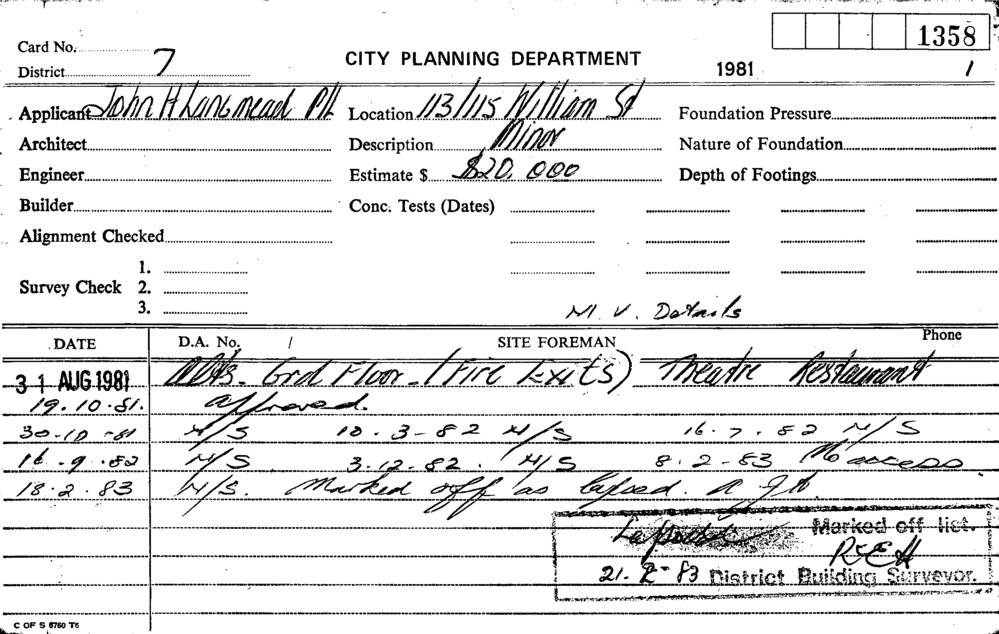 1358
Card No.
District 7
CITY PLANNING DEPARTMENT
1981 1
Applicant John H Langmead P/L Location 113/115 William St Foundation Pressure
Architect Description Minor Nature of Foundation
Engineer Estimate $ $20,000 Depth of Footings
Builder Conc. Tests (Dates)
Alignment Checked
1.
Survey Check 2.
3.
N. V. Details
DATE D.A. No. / SITE FOREMAN Phone
31 AUG 1981 Alts. Grd Floor - (Fire Exits) Theatre Restaurant
19.10.81. approved.
30-10-81 N/S 10.3-82 N/S 16.7.82 N/S
16.9.82 N/S. 3.12.82. N/S 8.2-83 No access
18.2.83 N/S. Marked off as lapsed.
Marked off list.
REH
21.2-83 District Building Surveyor.
C OF S 6760 T6